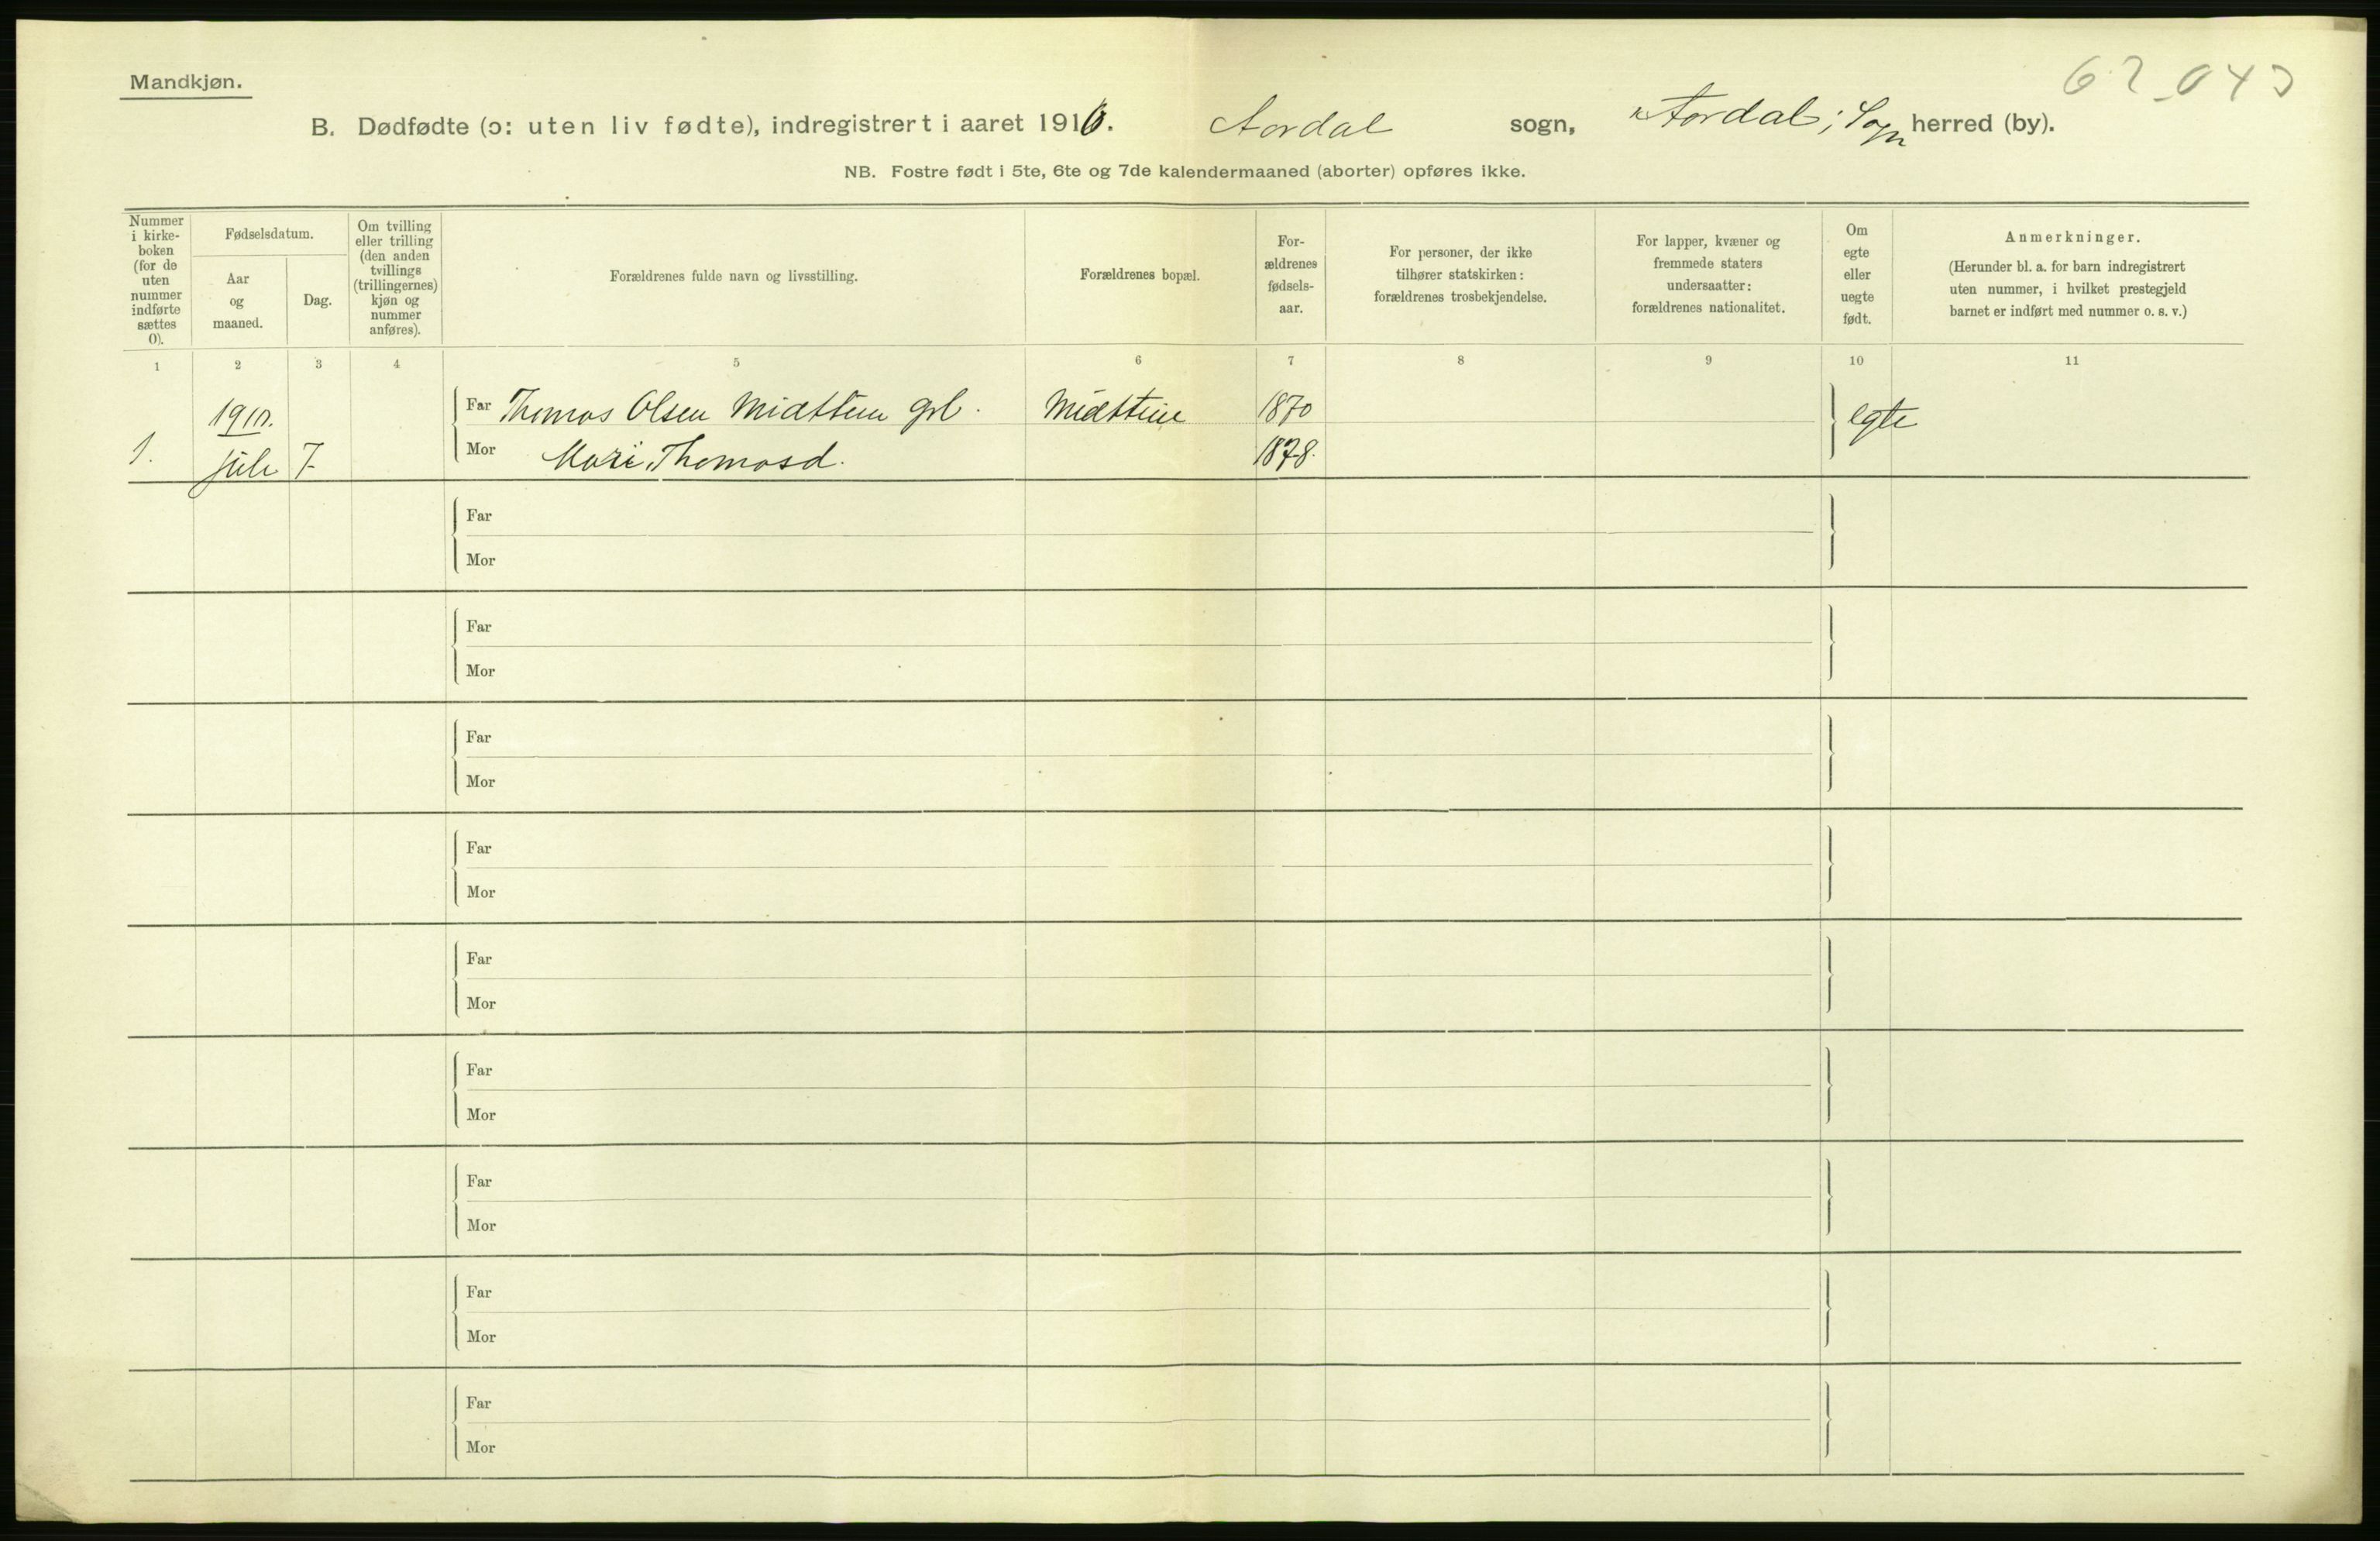 Mandkjøn.
B. Dødfødte (ɔ: uten liv fødte), indregistrert i aaret 1910. Aardal sogn, Aardal i Sogn herred (by).
NB. Fostre født i 5te, 6te og 7de kalendermaaned (aborter) opføres ikke.
Nummer
i kirke-
boken
(for de
uten
nummer
indførte
sættes
0).
Fødselsdatum.
Aar
og
maaned.
Dag.
Om tvilling
eller trilling
(den anden
tvillings
(trillingernes)
kjøn og
nummer
anføres).
Forældrenes fulde navn og livsstilling.
Forældrenes bopæl.
For-
ældrenes
fødsels-
aar.
For personer, der ikke
tilhører statskirken:
forældrenes trosbekjendelse.
For lapper, kvæner og
fremmede staters
undersaatter:
forældrenes nationalitet.
Om
egte
eller
uegte
født.
Anmerkninger.
(Herunder bl. a. for barn indregistrert
uten nummer, i hvilket prestegjeld
barnet er indført med nummer o. s. v.)
1 2 3 4 5 6 7 8 9 10 11
1910. Far Thomas Olsen Midttun Midttun 1870 egte
1. juli 7 Mor Mari Thomasd. 1878.
Far
Mor
Far
Mor
Far
Mor
Far
Mor
Far
Mor
Far
Mor
Far
Mor
Far
Mor
Far
Mor